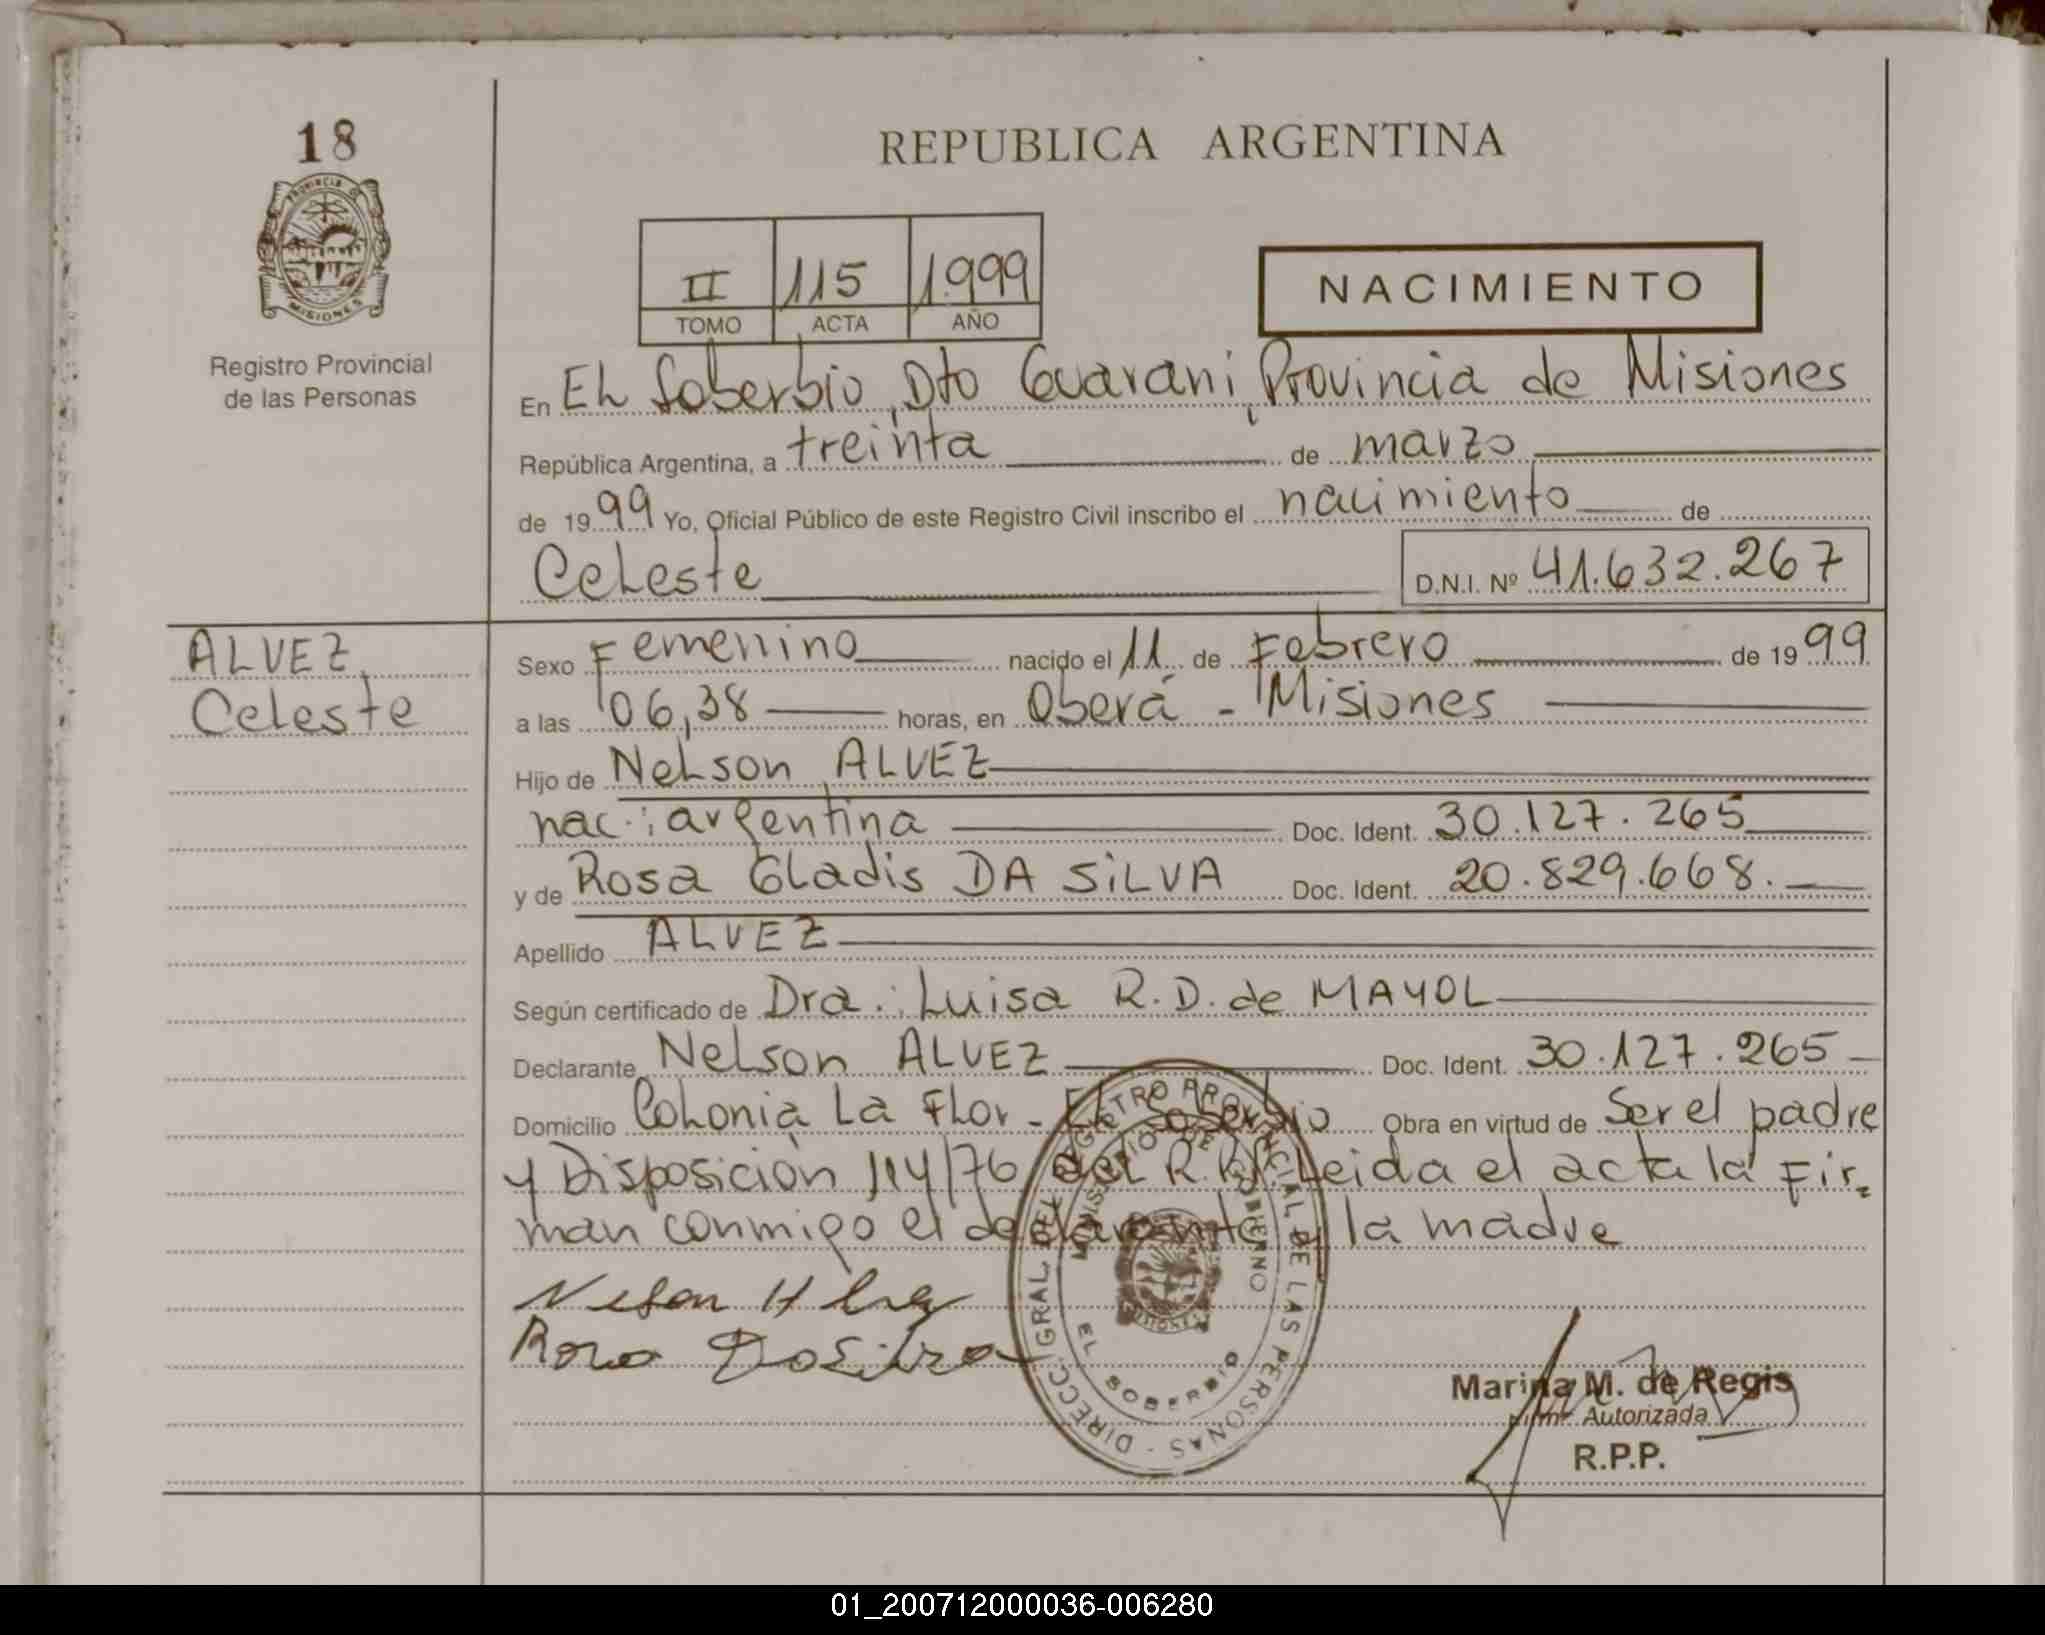 18
PROVINCIA D
MISIONES
Registro Provincial
de las Personas
REPUBLICA ARGENTINA
II 115 1.999
TOMO ACTA AÑO
NACIMIENTO
En EL Soberbio, Dto Guarani, Provincia de Misiones
República Argentina, a treinta de marzo
de 1999 Yo, Oficial Público de este Registro Civil inscribo el nacimiento de
Celeste D.N.I. Nº 41.632.267
ALVEZ,
Celeste
Sexo Femenino nacido el 11 de Febrero de 1999
a las 06,38 horas, en Oberá - Misiones
Hijo de Nelson ALVEZ
nac.: argentina Doc. Ident. 30.127.265
y de Rosa Gladis DA SiLVA Doc. Ident. 20.829.668.
Apellido ALVEZ
Según certificado de Dra. Luisa R.D. de MAYOL
Declarante Nelson ALVEZ Doc. Ident. 30.127.265
Domicilio Colonia La Flor - EL Soberbio Obra en virtud de Ser el padre
y Disposición 114/76 del R.P.P. Leida el acta la Fir=
man conmigo el declarante y la madre
Nelson Alvez
Rosa Da Silva
DIRECC. GRAL DEL REGISTRO PROVINCIAL DE LAS PERSONAS -
MINISTERIO DE GOBIERNO
MISIONES
EL SOBERBIO
Marina M. de Regis
Firma Autorizada
R.P.P.
01_200712000036-006280